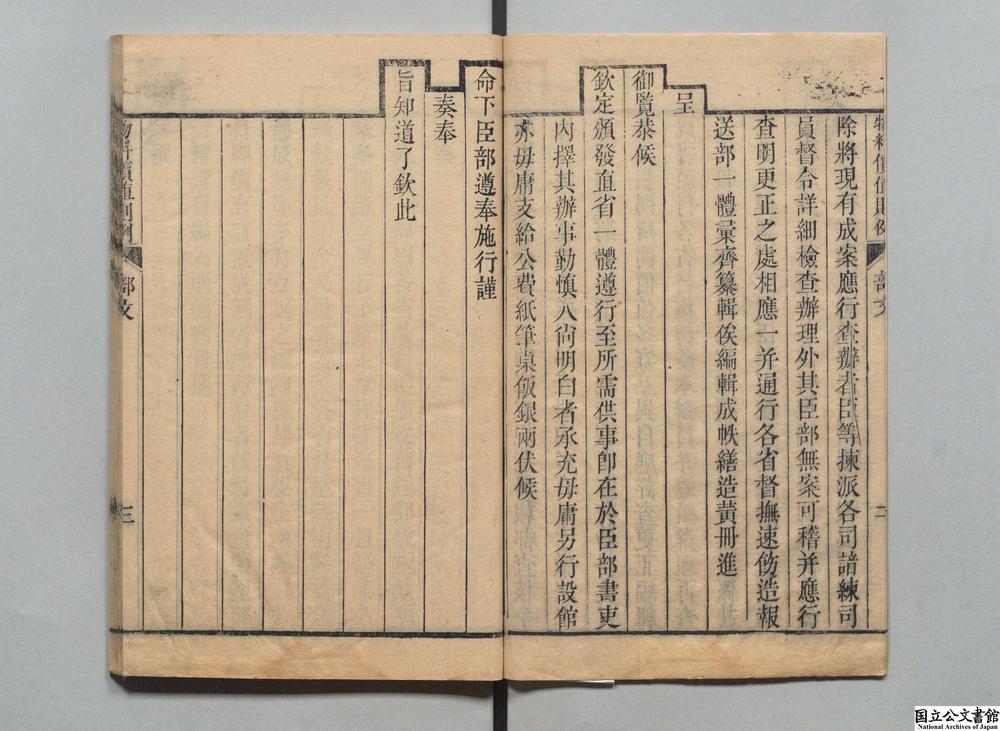 物料價值則例
部文
二
除將現有成案應行查辦者臣等揀派各司諳練司
員督令詳細檢查辦理外其臣部無案可稽并應行
查明更正之處相應一并通行各省督撫速飭造報
送部一體彙齊纂輯俟編輯成帙繕造黃冊進
呈
御覽恭候
欽定頒發直省一體遵行至所需供事卽在於臣部書吏
內擇其辦事勤慎人尙明白者承充毋庸另行設館
亦毋庸支給公費紙筆桌飯銀兩伏候
命下臣部遵奉施行謹
奏奉
旨知道了欽此
物料價值則例
部文
三
国立公文書館
National Archives of Japan